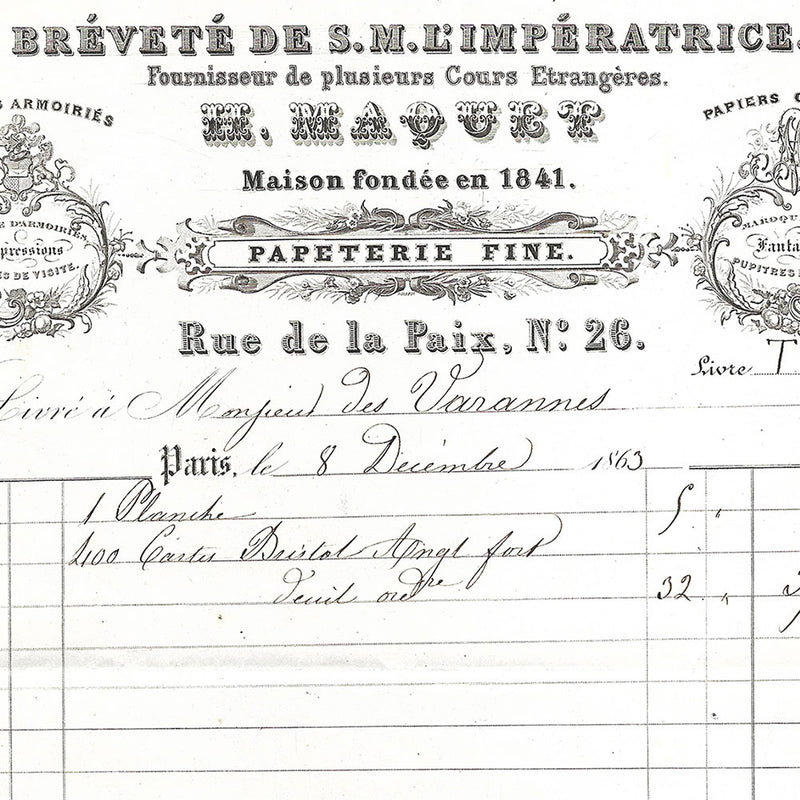 BRÉVETÉ DE S.M. L'IMPÉRATRICE.
Fournisseur de plusieurs Cours Etrangères.
ARMOIRIÉS
H. MAQUET
PAPIERS
Maison fondée en 1841.
D'ARMOIRIES
DE VISITE.
PAPETERIE FINE.
PUPITRES
Rue de la Paix, No. 26.
Livre T
Livré à Monsieur des Varannes
Paris, le 8 Decémbre 1863
1 Planche 5 "
400 Cartes Bristol Angl fort
deuil ordre 32 "